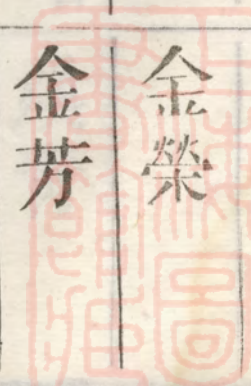 金榮
金芳